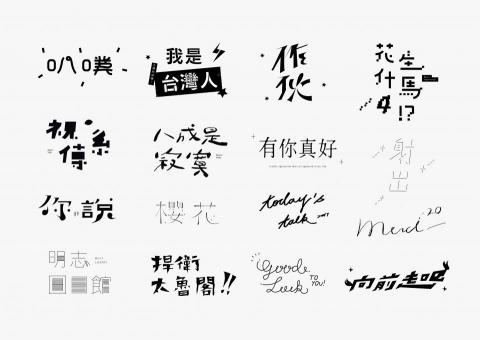 叭噗
我是
台灣人
作
伙
花生
什馬
4!?
視系
傳
八成是
寂寞
有你真好
射
出
你說
櫻花
today's
talk
merci '20
明志
圖書館
捍衛
太魯閣!!
Goode
Luck TO YOU!
向前走吧